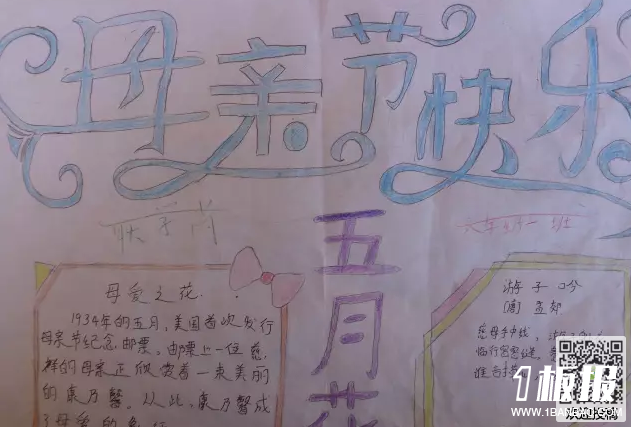 母亲节快乐
五月花
六年级二班
母爱之花
1934年的五月，美国首次发行
母亲节纪念邮票。邮票上一位慈
祥的母亲正欣赏着一束美丽
的康乃馨。从此，康乃馨成
了母爱的象征
游子吟
[唐]孟郊
慈母手中线，游子
临行密密缝，意
谁言
1板报
WWW.1BANBAO.COM
欢迎投稿